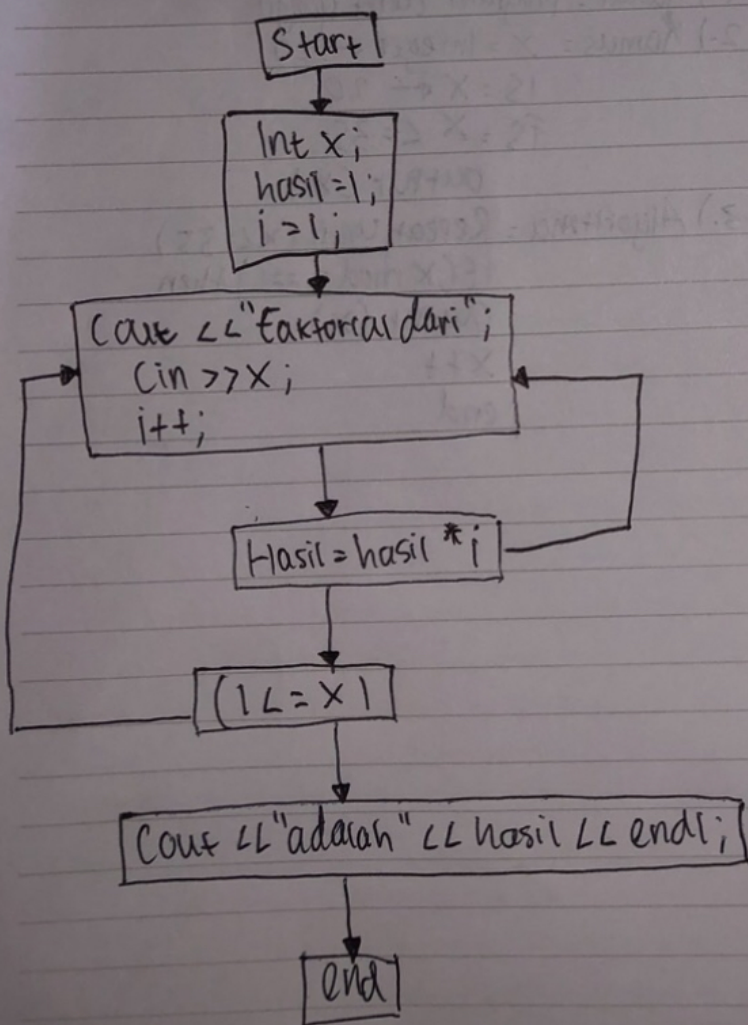 Start
Int x;
hasil = 1;
i = 1;
Cout << "Faktorial dari";
Cin >> x;
i++;
Hasil = hasil * i
(i <= x)
Cout << "adalah" << hasil << endl;
end